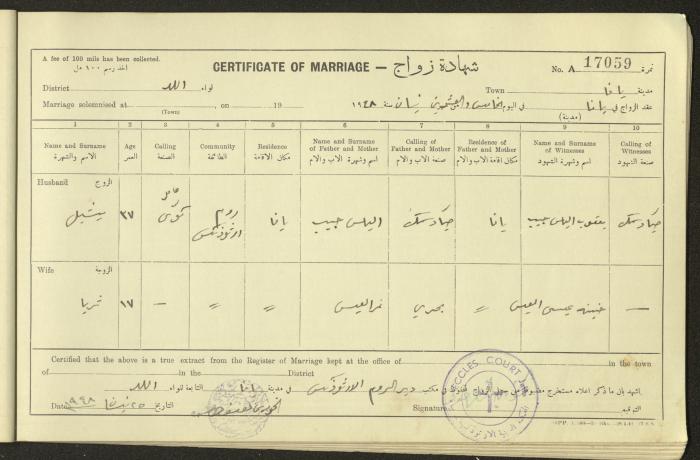 A fee of 100 mils has been collected.
اخذ رسم ١٠٠ مل
CERTIFICATE OF MARRIAGE — شهادة زواج
No. A 17059 نمرة
District لواء اللد
Town مدينة يافا
Marriage solemnised at (Town), on 19
عقد الزواج في يافا (مدينة) في اليوم الخامس والعشرين نيسان سنة ١٩٤٨
1 2 3 4 5 6 7 8 9 10
Name and Surname الاسم والشهرة
Age العمر
Calling الصنعة
Community الطائفة
Residence مكان الاقامة
Name and Surname of Father and Mother اسم وشهرة الاب والام
Calling of Father and Mother صنعة الاب والام
Residence of Father and Mother مكان اقامة الاب والام
Name and Surname of Witnesses اسم وشهرة الشهود
Calling of Witnesses صنعة الشهود
Husband الزوج
ميشيل ٣٧ روم ارثوذكس يافا الياس حبيب يافا يعقوب الياس حبيب
Wife الزوجة
ثريا ١٧ — 〃 〃 نمر العيس بحري 〃 عيسى العيس —
Certified that the above is a true extract from the Register of Marriage kept at the office of in the town
of in the District
دير الروم الارثوذكس في مدينة يافا التابعة للواء اللد
Date التاريخ ٢٥ نيسان ٩٤٨
Signature التوقيع
ECCLES. COURT